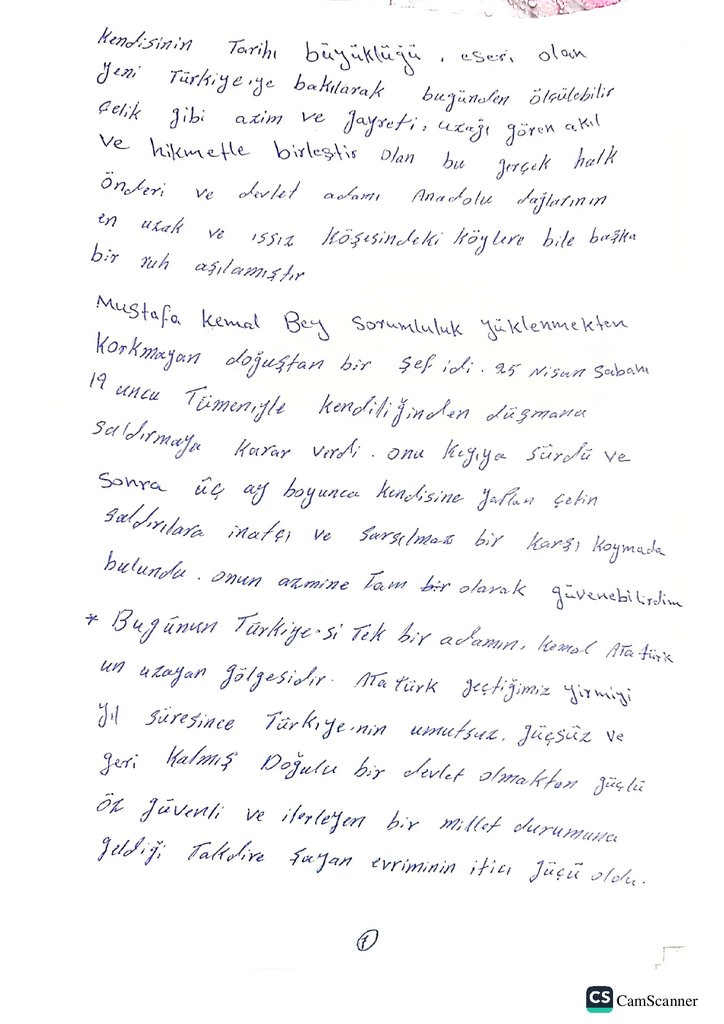 Kendisinin Tarihi büyüklüğü, eseri olan
yeni Türkiye'ye bakılarak bugünden ölçülebilir
çelik gibi azim ve gayreti, uzağı gören akıl
ve hikmetle birleştir olan bu gerçek halk
önderi ve devlet adamı Anadolu dağlarının
en uzak ve ıssız köşesindeki köylere bile başka
bir ruh aşılamıştır
Mustafa Kemal Bey sorumluluk yüklenmekten
korkmayan doğuştan bir şef idi. 25 Nisan sabahı
19 uncu Tümeniyle kendiliğinden düşmana
saldırmaya karar verdi. onu kıyıya sürdü ve
sonra üç ay boyunca kendisine yapılan çetin
saldırılara inatçı ve sarsılmaz bir karşı koymada
bulundu. onun azmine Tam bir olarak güvenebilirdim
* Bugünün Türkiye'si Tek bir adamın, Kemal Atatürk
ün uzayan gölgesidir. Atatürk geçtiğimiz yirmiyi
yıl süresince Türkiye'nin umutsuz, güçsüz ve
geri kalmış Doğulu bir devlet olmaktan güçlü
öz güvenli ve ilerleyen bir millet durumuna
geldiği Takdire şayan evriminin itici gücü oldu.
1
CS CamScanner